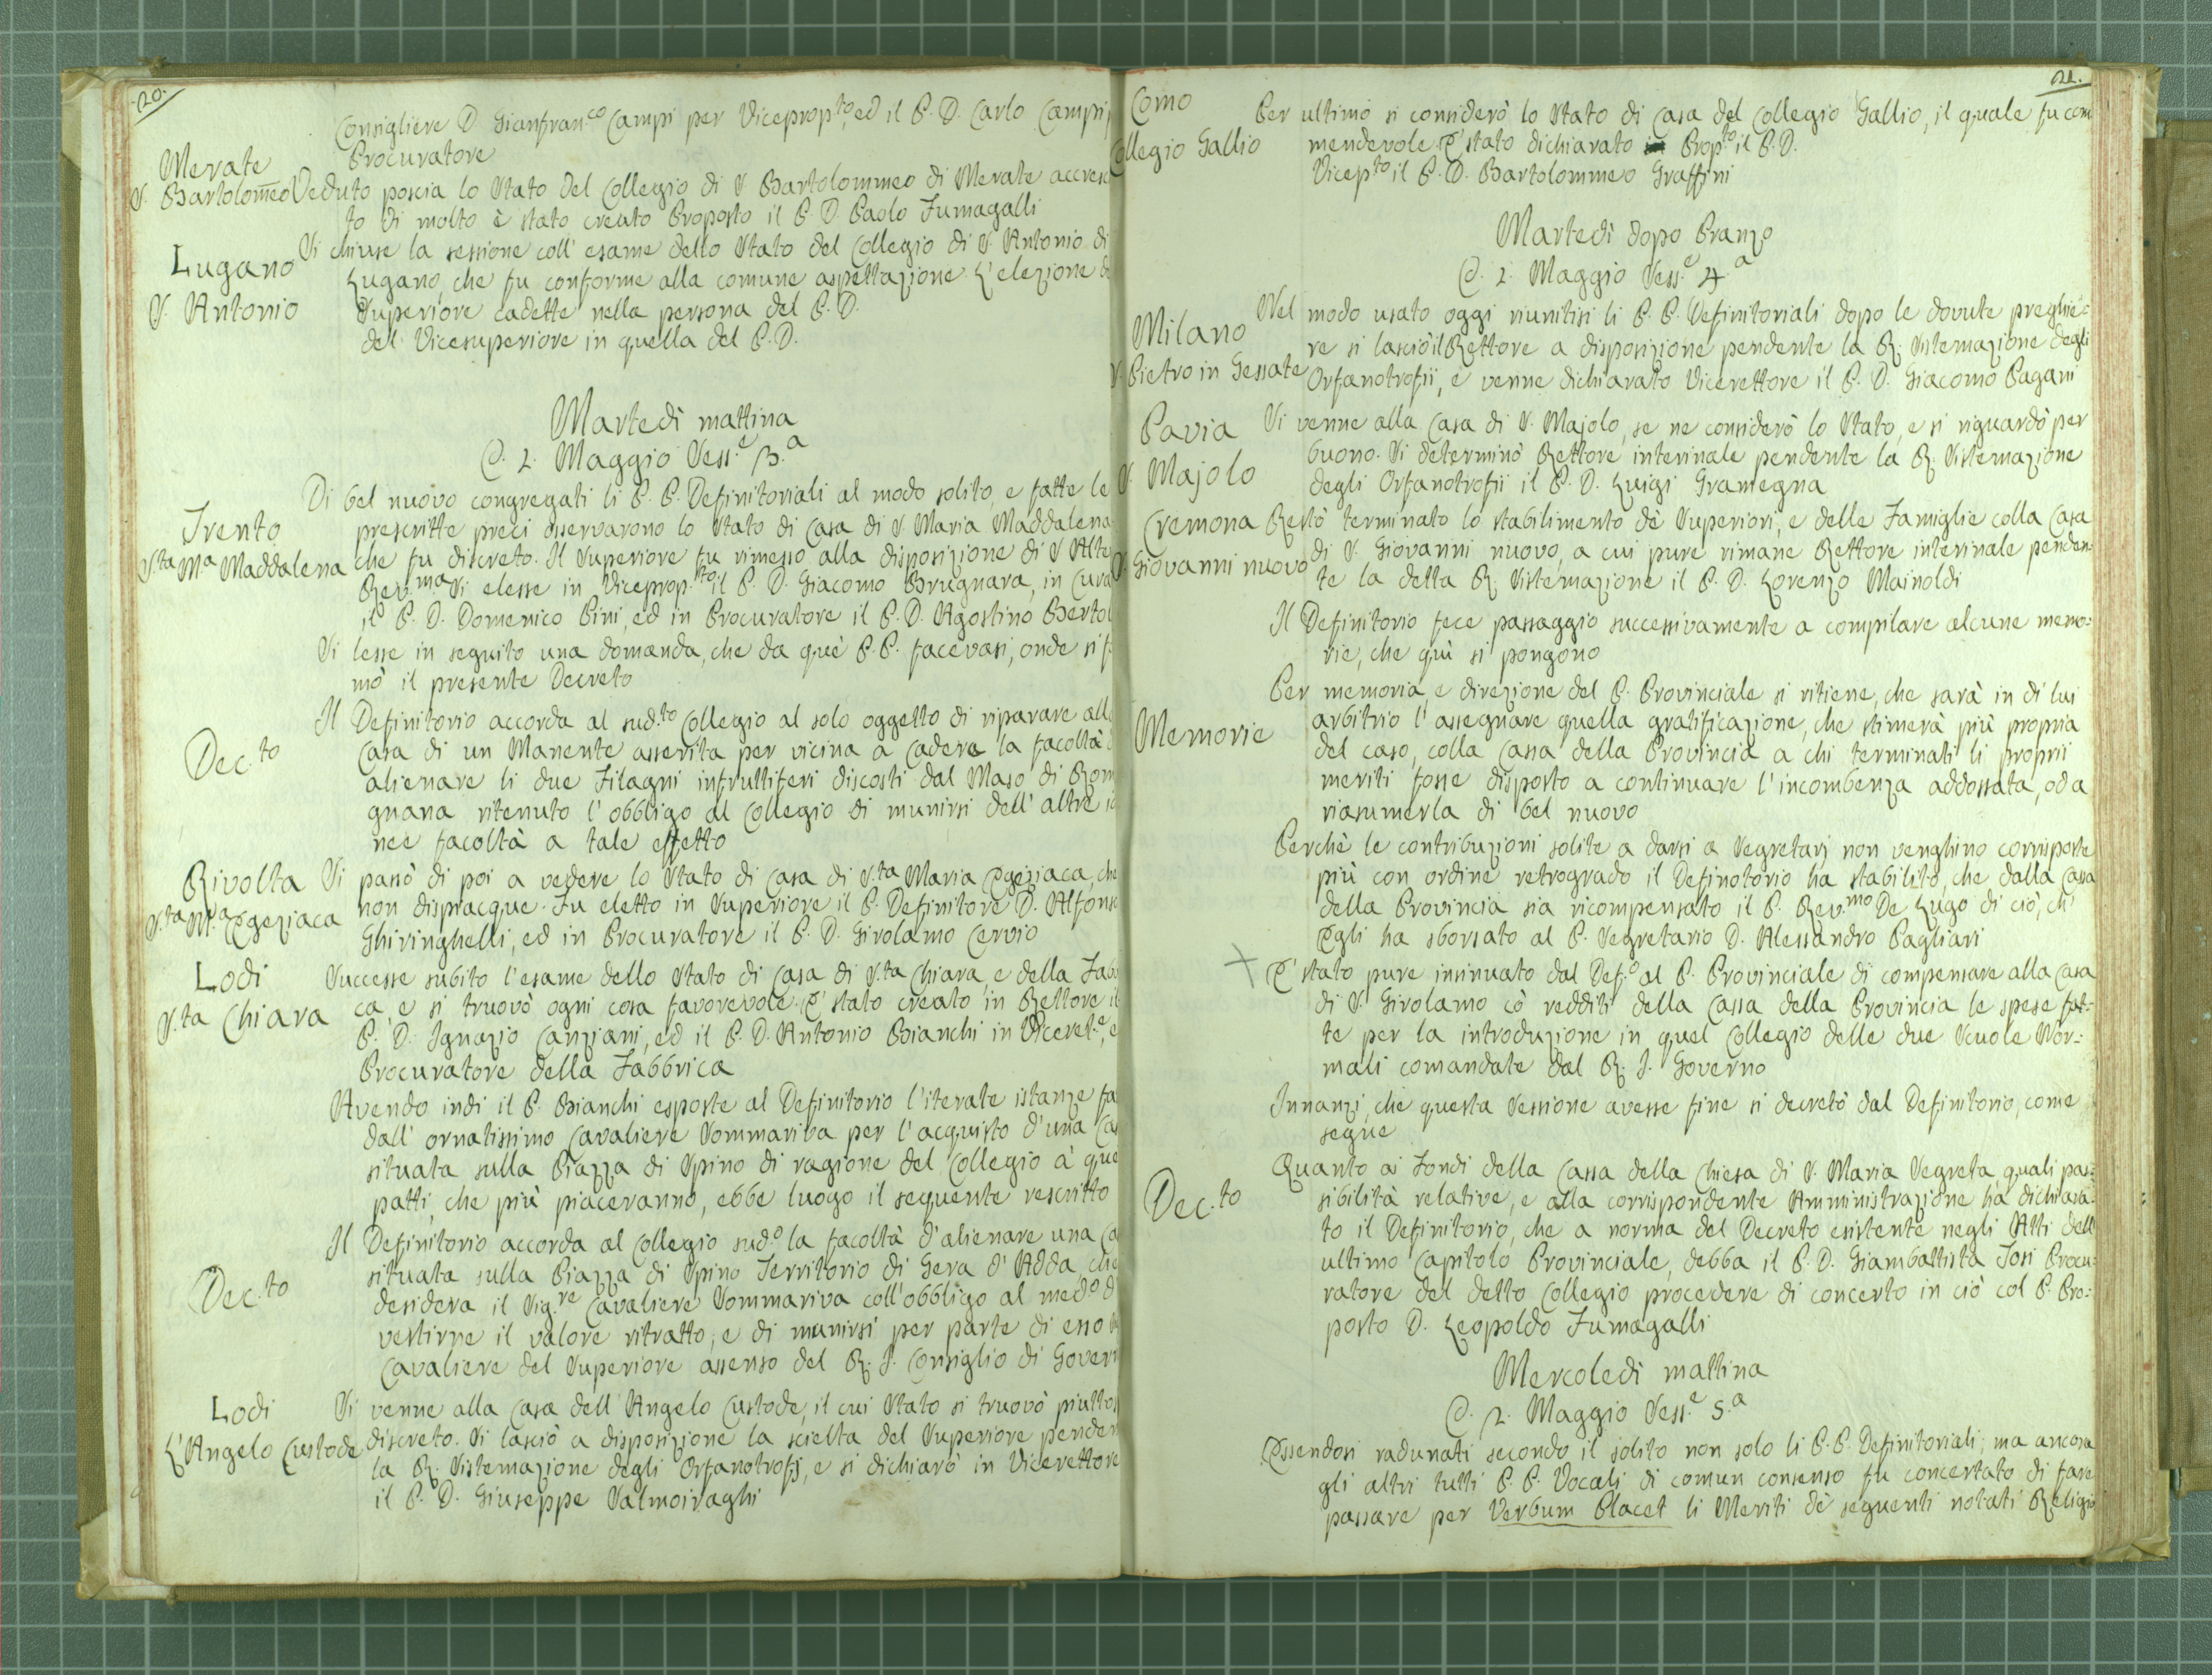 20.
Consigliere D. Gianfran.co Campi per Viceprop.to, ed il P. D. Carlo Campi
Procuratore
Merate
S. Bartolomeo
Veduto poscia lo Stato del Collegio di S. Bartolommeo di Merate accresc
to di molto è stato creato Proposto il P. D. Paolo Fumagalli
Lugano
S. Antonio
Si chiuse la sessione coll' esame dello Stato del Collegio di S. Antonio di
Lugano, che fu conforme alla comune aspettazione L'elezione de
Superiore cadette nella persona del P. D.
del Vicesuperiore in quella del P. D.
Martedì mattina
D. 2. Maggio Sess.e 3.a
Trento
S.ta M.a Maddalena
Di bel nuovo congregati li P. P. Definitoriali al modo solito, e fatte le
prescritte preci osservarono lo Stato di Casa di S. Maria Maddalena
che fu discreto. Il Superiore fu rimesso alla disposizione di S. Alte
Rev.ma Si elesse in Viceprop.sto il P. D. Giacomo Brugnara, in Cura
il P. D. Domenico Pini, ed in Procuratore il P. D. Agostino Bertol
Si lesse in seguito una domanda, che da què P. P. facevasi, onde si f
mò il presente Decreto
Dec.to
Il Definitorio accorda al sud.to Collegio al solo oggetto di riparare alla
Casa di un Manente asserita per vicina a cadere la facoltà d
alienare li due Filagni infruttiferi discosti dal Maso di Rom
gnana ritenuto l'obbligo al Collegio di munirsi dell' altre id
nee facoltà a tale effetto
Rivolta
S.ta M.a Egeziaca
Si passò di poi a vedere lo Stato di Casa di S.ta Maria Egeziaca, che
non dispiacque. Fu eletto in Superiore il P. Definitore D. Alfonso
Ghiringhelli, ed in Procuratore il P. D. Girolamo Cervio
Lodi
S.ta Chiara
Successe subito l'esame dello Stato di Casa di S.ta Chiara e della Fab
ca, e si truovò ogni cosa favorevole. E' stato creato in Rettore il
P. D. Ignazio Canziani, ed il P. D. Antonio Bianchi in Viceret.e, e
Procuratore della Fabbrica
Avendo indi il P. Bianchi esposte al Definitorio l'iterate istanze fa
dall' ornatissimo Cavaliere Sommariva per l'acquisto d'una Ca
situata sulla Piazza di Spino di ragione del Collegio à que
patti, che più piaceranno, ebbe luogo il seguente rescritto
Dec.to
Il Definitorio accorda al Collegio sud.o la facoltà d'alienare una Ca
situata sulla Piazza di Spino Territorio di Gera d'Adda, che
desidera il Sig.re Cavaliere Sommariva coll'obbligo al med.o d
vestirne il valore ritratto, e di munirsi per parte di esso
Cavaliere del Superiore assenso del R. I. Consiglio di Govern
Lodi
L'Angelo Custode
Si venne alla Casa dell'Angelo Custode, il cui Stato si truovò piuttos
discreto. Si lasciò a disposizione la scielta del Superiore penden
la R. Sistemazione degli Orfanotrofj, e si dichiarò in Vicerettore
il P. D. Giuseppe Valmoiraghi
21.
Como
Collegio Gallio
Per ultimo si considerò lo Stato di Casa del Collegio Gallio, il quale fu com
mendevole. E' stato dichiarato Prop.to il P. D.
Vicep.to il P. D. Bartolommeo Graffini
Martedì dopo Pranzo
D. 2. Maggio Sess.e 4.a
Milano
S. Pietro in Gessate
Nel modo usato oggi riunitisi li P. P. Definitoriali dopo le dovute preghie:
re si lasciò il Rettore a disposizione pendente la R. Sistemazione degli
Orfanotrofii, e venne dichiarato Vicerettore il P. D. Giacomo Pagani
Pavia
S. Majolo
Si venne alla Casa di S. Majolo, se ne considerò lo Stato, e si riguardò per
buono. Si determinò Rettore interinale pendente la R. Sistemazione
degli Orfanotrofii il P. D. Luigi Gramegna
Cremona
S. Giovanni nuovo
Restò terminato lo stabilimento dè Superiori, e delle Famiglie colla Casa
di S. Giovanni nuovo, a cui pure rimane Rettore interinale penden:
te la detta R. Sistemazione il P. D. Lorenzo Mainoldi
Il Definitorio fece passaggio successivamente a compilare alcune memo:
rie, che quì si pongono
Memorie
Per memoria, e direzione del P. Provinciale si ritiene, che sarà in di lui
arbitrio l'assegnare quella gratificazione, che stimerà più propria
del caso, colla Cassa della Provincia a chi terminati li proprii
meriti fosse disposto a continuare l'incombenza addossata, od a
riassumerla di bel nuovo
Perchè le contribuzioni solite a darsi a Segretarj non venghino corrisposte
più con ordine retrogrado il Definotorio ha stabilito, che dalla Cassa
della Provincia sia ricompensato il P. Rev.mo De Lugo di ciò, ch'
Egli ha sborsato al P. Segretario D. Alessandro Pagliari
E' stato pure insinuato dal Def.o al P. Provinciale di compensare alla Casa
di S. Girolamo cò redditi della Cassa della Provincia le spese fat:
te per la introduzione in quel Collegio delle due Scuole Nor:
mali comandate dal R. I. Governo
Innanzi, che questa Sessione avesse fine si decretò dal Definitorio, come
segue
Dec.to
Quanto ai Fondi della Cassa della Chiesa di S. Maria Segreta, quali pas:
sibilità relative, e alla corrispondente Amministrazione ha dichiara:
to il Definitorio, che a norma del Decreto esistente negli Atti dell
ultimo Capitolo Provinciale, debba il P. D. Giambattista Fosi Procu:
ratore del detto Collegio procedere di concerto in ciò col P. Pro:
posto D. Leopoldo Fumagalli
Mercoledì mattina
D. 2. Maggio Sess.e 5.a
Essendosi radunati secondo il solito non solo li P. P. Definitoriali; ma ancora
gli altri tutti P. P. Vocali di comun consenso fu concertato di fare
passare per Verbum Placet li Meriti dè seguenti notati Religio